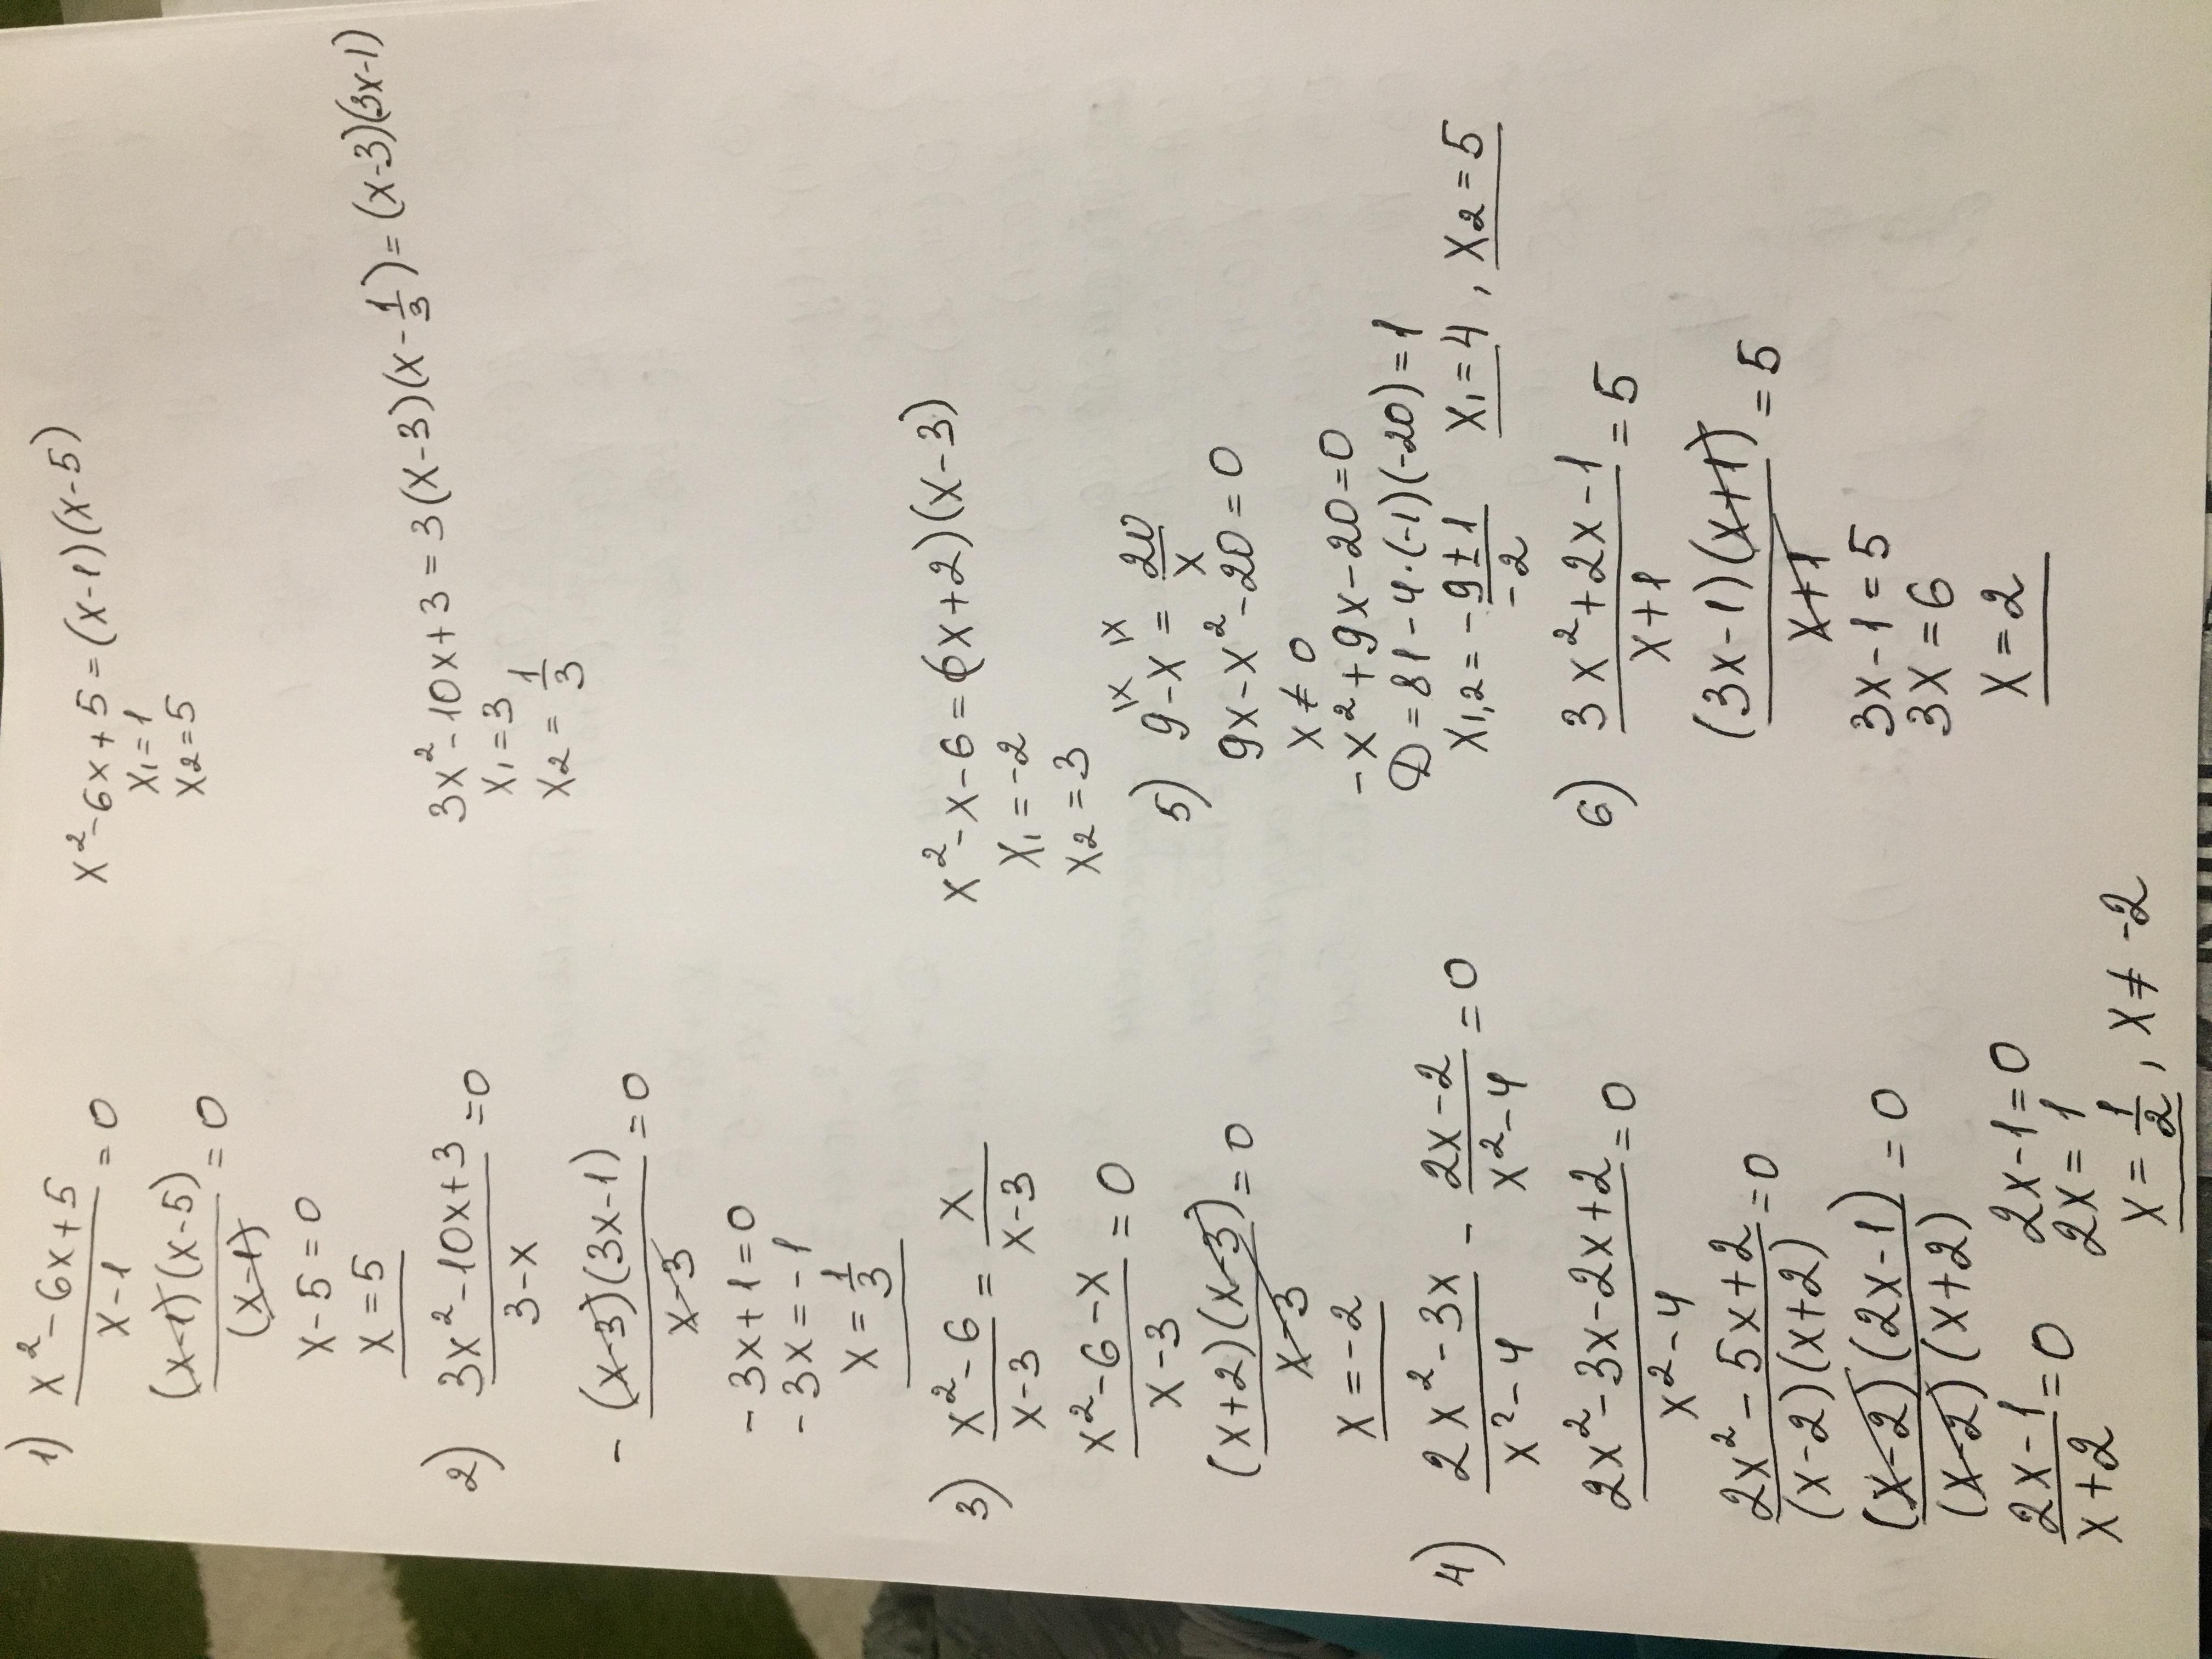 1) x²-6x+5/x-1 = 0
x²-6x+5=(x-1)(x-5)
x₁=1
x₂=5
(x-1)(x-5)/(x-1) = 0
x-5=0
x=5
2) 3x²-10x+3/3-x =0
3x²-10x+3=3(x-3)(x-1/3)=(x-3)(3x-1)
x₁=3
x₂=1/3
-(x-3)(3x-1)/x-3 =0
-3x+1=0
-3x=-1
x=1/3
3) x²-6/x-3 = x/x-3
x²-x-6=(x+2)(x-3)
x₁=-2
x₂=3
x²-6-x/x-3 =0
(x+2)(x-3)/x-3 =0
x=-2
4) 2x²-3x/x²-4 - 2x-2/x²-4 =0
2x²-3x-2x+2/x²-4 =0
2x²-5x+2/(x-2)(x+2) =0
(x-2)(2x-1)/(x-2)(x+2) =0
2x-1/x+2 =0
2x-1=0
2x=1
x=1/2, x≠-2
5) 9-x= 20/x
9x-x²-20=0
x≠0
-x²+9x-20=0
D=81-4·(-1)(-20)=1
x₁,₂= -9±1/-2 x₁=4, x₂=5
6) 3x²+2x-1/x+1 =5
(3x-1)(x+1)/x+1 =5
3x-1=5
3x=6
x=2